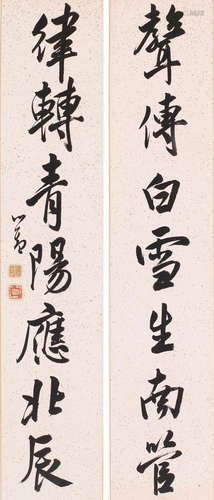 聲傳白雪生南管
律轉青陽應北辰
心畬